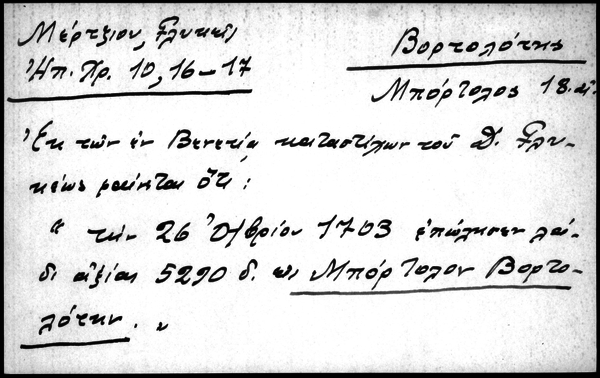 Μέρτζιου, Γλυκεῖς
Ἠπ. Χρ. 10, 16–17
Βορτολότης
Μπόρτολος 18. αἰ.
Ἐκ τῶν ἐν Βενετίᾳ καταστίχων τοῦ Δ. Γλυ-
κέως φαίνεται ὅτι:
" τὴν 26 Ὀ/βρίου 1703 ἐπώλησεν λά-
δι ἀξίας 5290 δ. εἰς Μπόρτολον Βορτο-
λότην. "